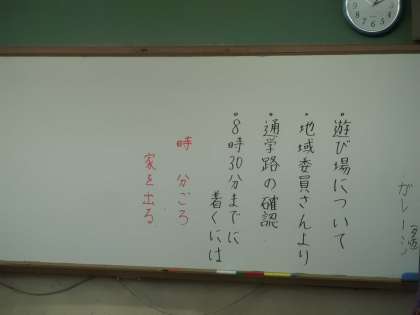 ・遊び場について
・地域委員さんより
・通学路の確認
・8時30分までに
着くには
時　分ごろ
家を出る